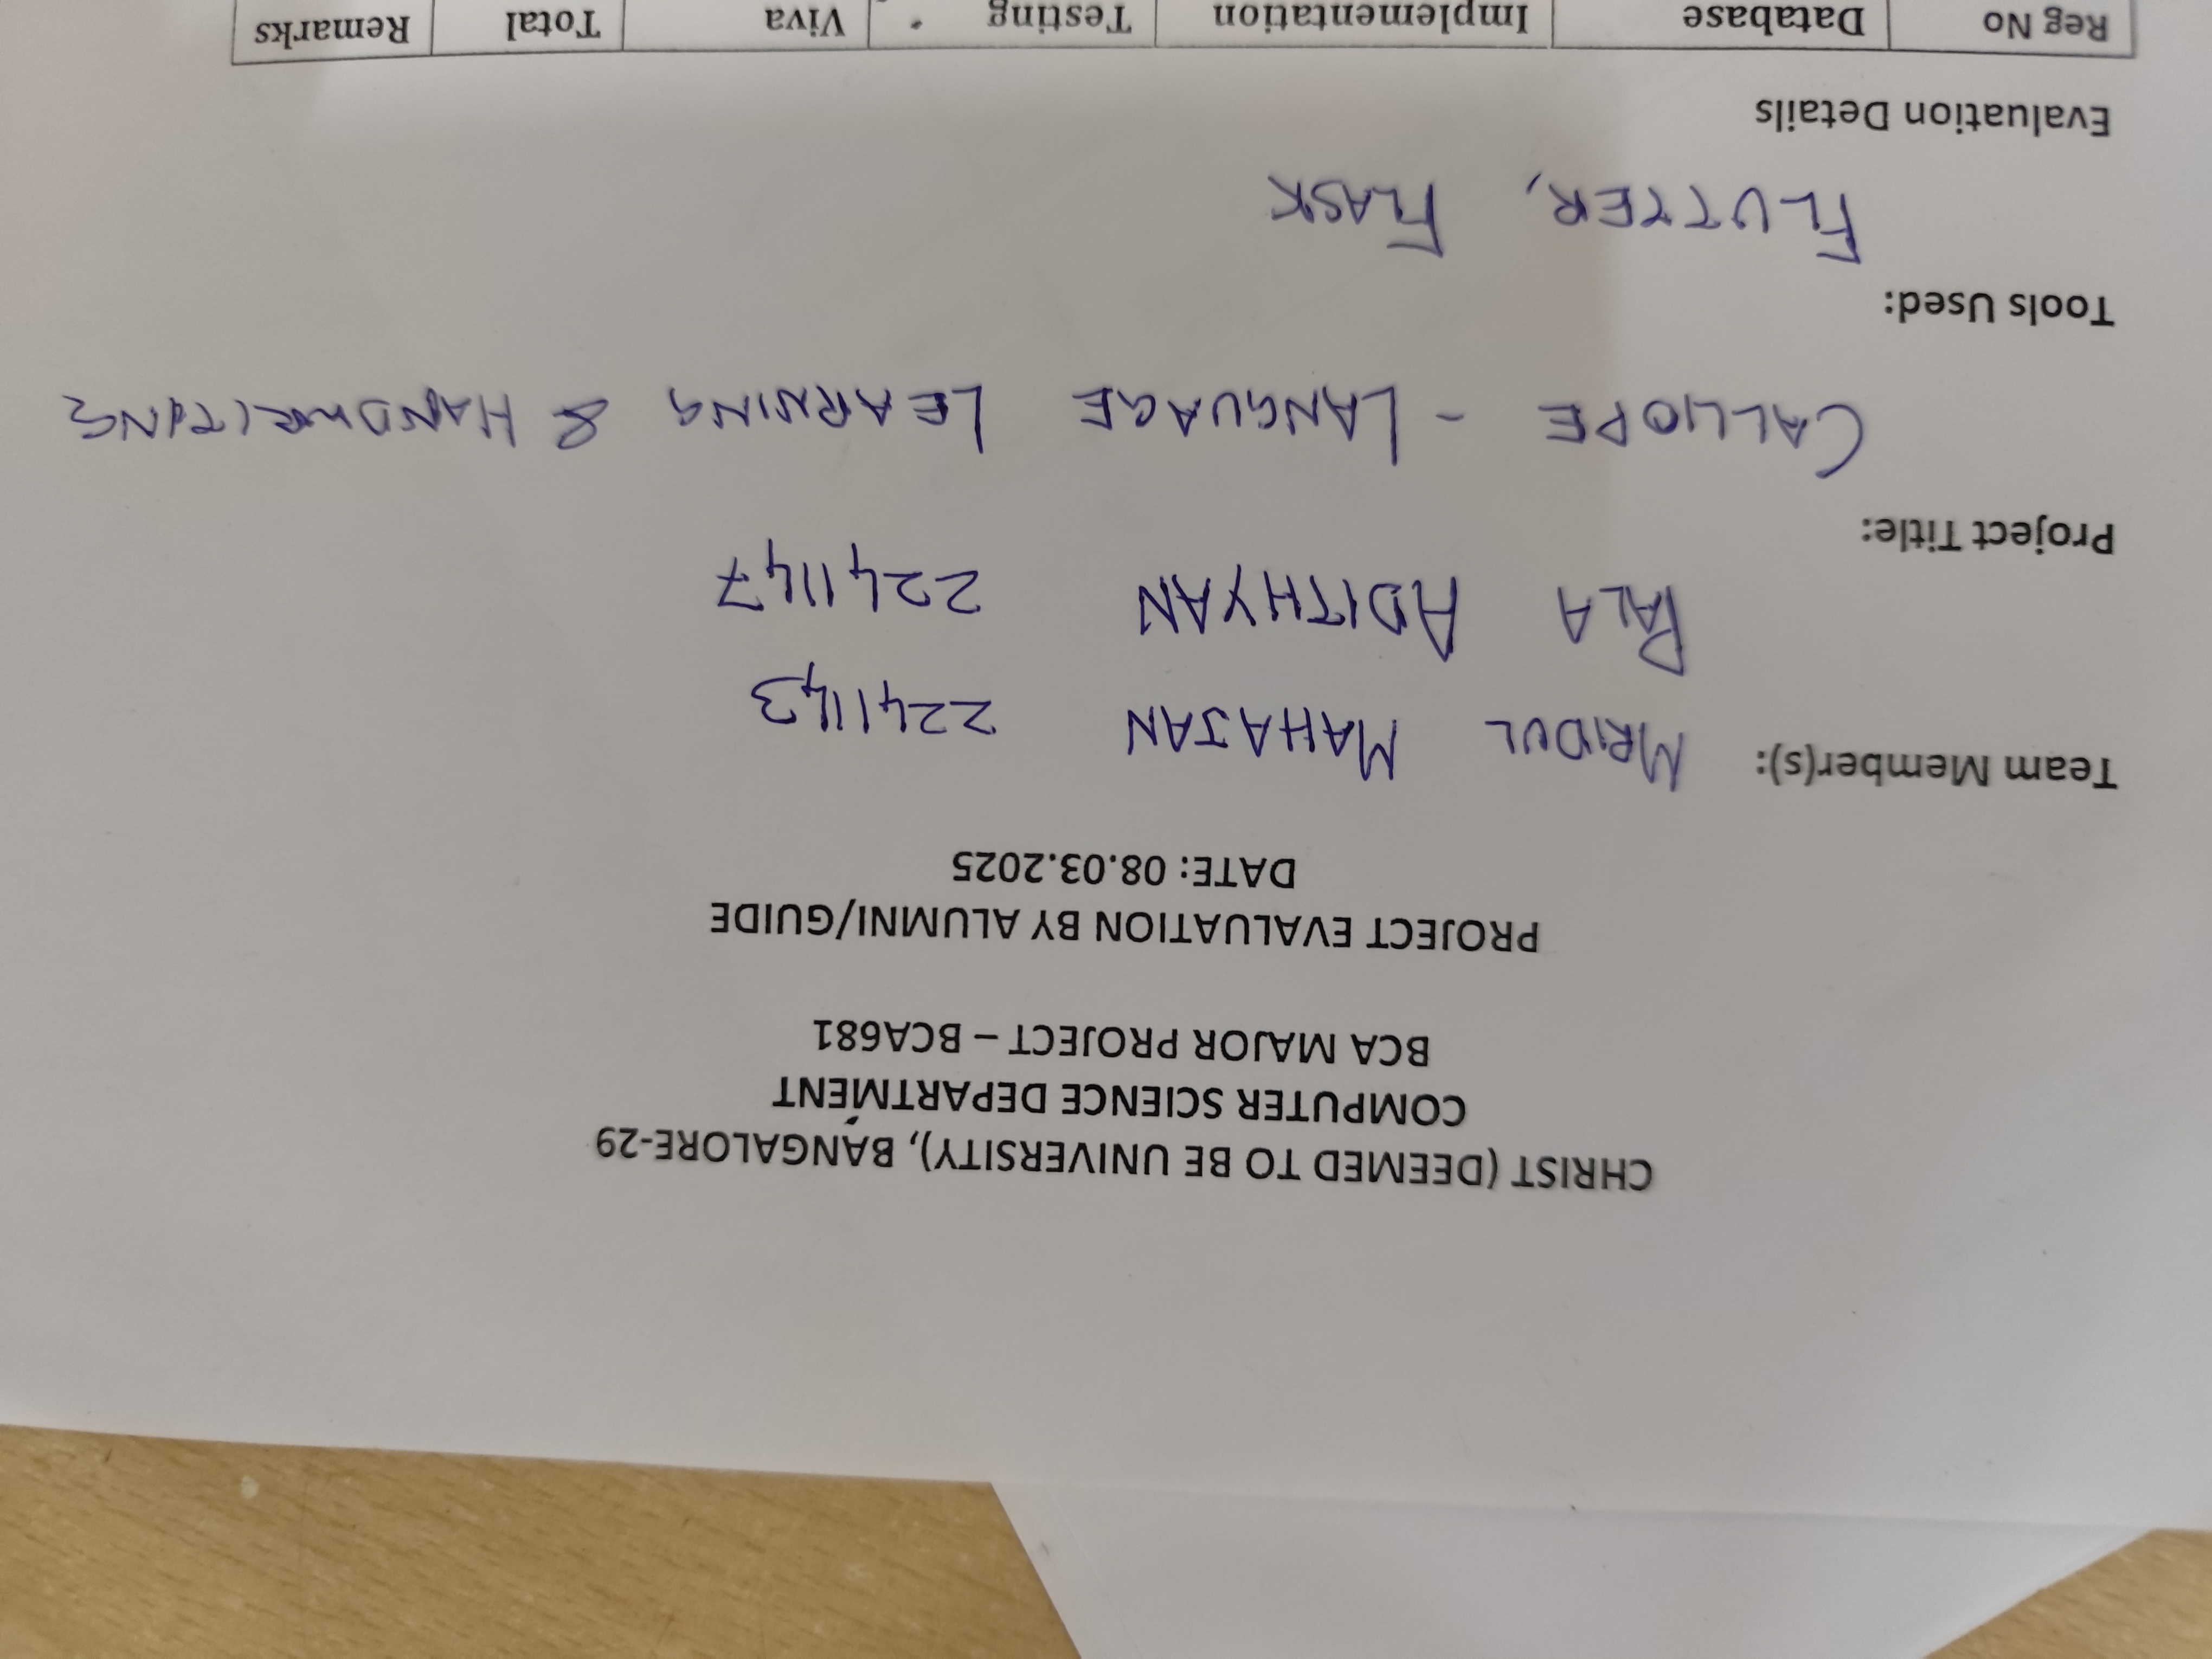 CHRIST (DEEMED TO BE UNIVERSITY), BANGALORE-29
COMPUTER SCIENCE DEPARTMENT
BCA MAJOR PROJECT – BCA681
PROJECT EVALUATION BY ALUMNI/GUIDE
DATE: 08.03.2025
Team Member(s): MRIDUL MAHAJAN 2241143
PALA ADITHYAN 2241147
Project Title:
CALLIOPE - LANGUAGE LEARNING & HANDWRITING
Tools Used:
FLUTTER, FLASK
Evaluation Details
Reg No Database Implementation Testing Viva Total Remarks